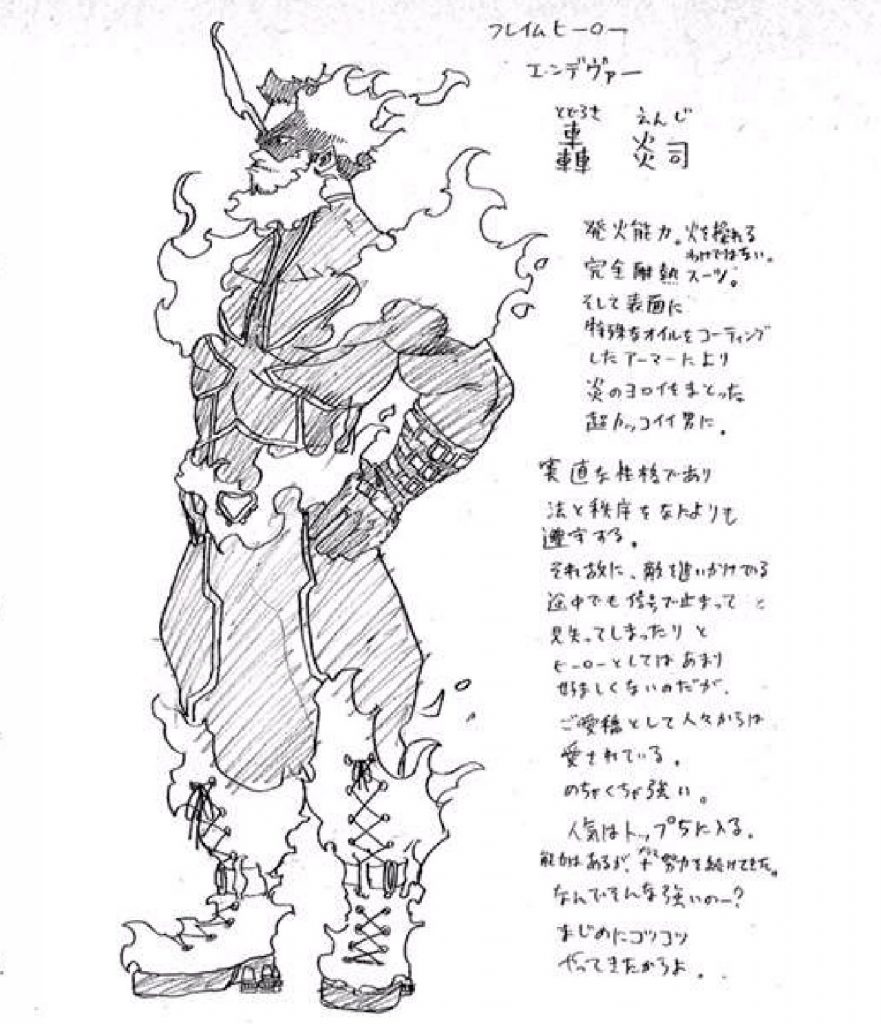 フレイムヒーロー
エンデヴァー
とどろき えんじ
轟 炎司
発火能力。火を操れる
わけではない。
完全耐熱スーツ。
そして表面に
特殊なオイルをコーティング
したアーマーにより
炎のヨロイをまとった
超カッコイイ男に。
実直な性格であり
法と秩序をなによりも
遵守する。
それ故に、敵を追いかけている
途中でも信号で止まって
見失ってしまったりと
ヒーローとしてはあまり
好ましくないのだが、
ご愛嬌として人々からは
愛されている。
めちゃくちゃ強い。
人気はトップ5に入る。
能力はあるが、努力を続けてきた。
なんでそんな強いのー?
まじめにコツコツ
やってきたからよ。